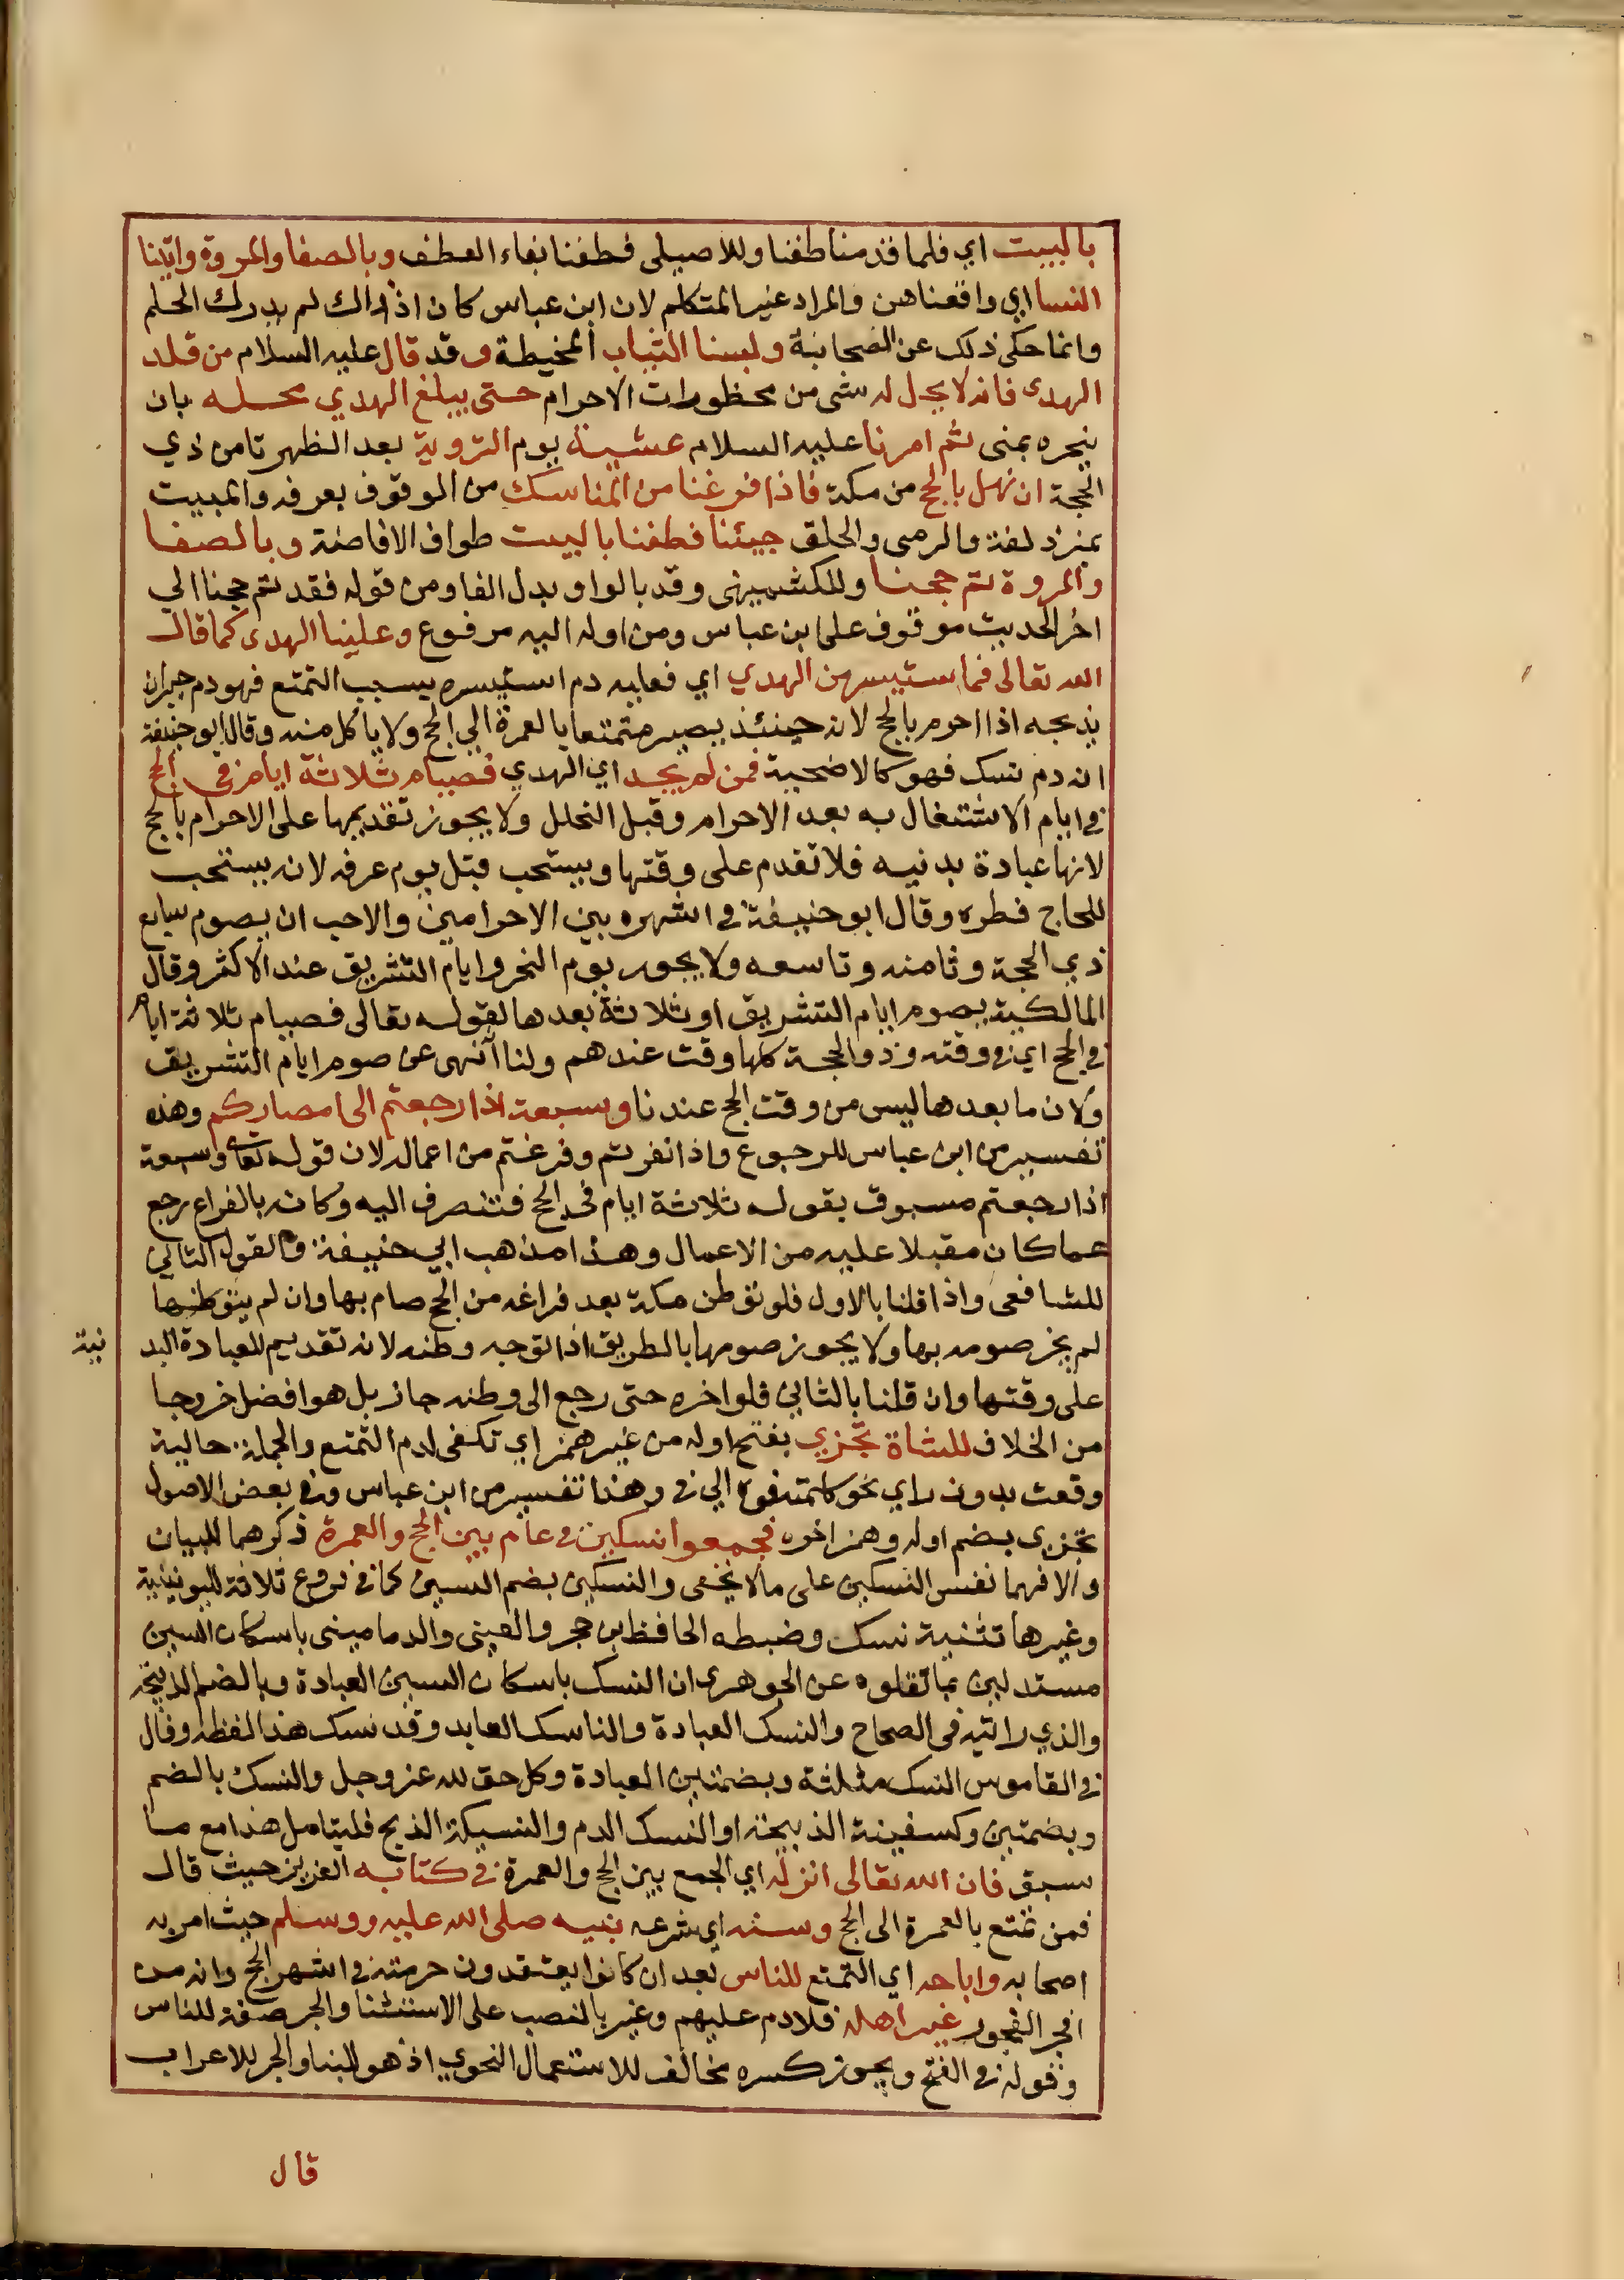 بالبيت اي فلما قدمنا طفنا وللاصيلى فطفنا بفاء العطف وبالصفا والمروة واتينا
النسا اي واقعناهن والمراد غير المتكلم لان ابن عباس كان اذ ذاك لم يدرك الحلم
وانما حكى ذلك عن الصحابة ولبسنا الثياب المخيطة وقد قال عليه السلام من قلد
الهدى فانه لا يحل له شى من محظورات الاحرام حتى يبلغ الهدي محله بان
ينحره بمنى ثم امرنا عليه السلام عشية يوم التروية بعد الظهر ثامن ذي
الحجة ان نهل بالحج من مكة فاذا فرغنا من المناسك من الوقوف بعرفه والمبيت
بمزدلفة والرمى والحلق جيئنا فطفنا بالبيت طواف الافاضة وبالصفا
والمروة تم حجنا وللكشميهنى وقد بالواو بدل الفا ومن قوله فقد تم حجنا الي
اخر الحديث موقوف على ابن عباس ومن اوله اليه مرفوع وعلينا الهدى كما قال
الله تعالى فما استيسر من الهدي اي فعليه دم استيسره بسبب التمتع فهو دم جبران
يذبحه اذا احرم بالحج لانه حينئذ يصير متمتعا بالعمرة الي الحج ولا ياكل منه وقال ابو حنيفة
انه دم نسك فهو كالاضحية فمن لم يجد اي الهدي فصيام ثلاثة ايام في الحج
في ايام الاشتغال به بعد الاحرام وقبل التحلل ولا يجوز تقديمها على الاحرام بالحج
لانها عبادة بدنيه فلا تقدم على وقتها ويستحب قبل يوم عرفه لانه يستحب
للحاج فطره وقال ابو حنيفة في اشهره بين الاحرامين والاحب ان يصوم سابع
ذي الحجة وثامنه وتاسعه ولا يجوز يوم النحر وايام التشريق عند الاكثر وقال
المالكية يصوم ايام التشريق او ثلاثة بعدها لقوله تعالى فصيام ثلاثة ايام
في الحج اي في وقته وذو الحجة كلها وقت عندهم ولنا انهى عن صوم ايام التشريق
ولان ما بعدها ليس من وقت الحج عندنا وسبعة اذا رجعتم الى امصاركم وهذه
تفسير من ابن عباس للرجوع واذا نفرتم وفرغتم من اعماله لان قوله تعالى وسبعة
اذا رجعتم مسبوق بقوله ثلاثة ايام في الحج فتنصرف اليه وكانه بالفراغ رجع
عما كان مقبلا عليه من الاعمال وهذا مذهب ابي حنيفة والقول الثاني
للشافعى واذا قلنا بالاول فلو توطن مكة بعد فراغه من الحج صام بها وان لم يتوطنها
لم يجز صومه بها ولا يجوز صومها بالطريق اذا توجه وطنه لانه تقديم للعبادة البد
نية
على وقتها وان قلنا بالثاني فلو اخره حتى رجع الى وطنه جاز بل هو افضل خروجا
من الخلاف للشاة تجزي بفتح اوله من غير همز اي تكفى لدم التمتع والجملة حالية
وقعت بدون راي نحو كلمته فوه الي في وهذا تفسير من ابن عباس وفي بعض الاصول
تجزى بضم اوله وهمز اخره فجمعوا نسكين في عام بين الحج والعمرة ذكرهما للبيان
والا فهما نفس النسكين على مالا يخفى والنسكين بضم السين كما في فروع ثلاثة لليونينية
وغيرها تثنية نسك وضبطه الحافظ بن حجر والعينى والدمامينى باسكان السين
مستدلين بما نقلوه عن الجوهرى ان النسك باسكان السين العبادة وبالضم الذبيحة
والذي رايته فى الصحاح والنسك العبادة والناسك العابد وقد نسك هذا لفظه وقال
في القاموس النسك مثلثة وبضمتين العبادة وكل حق لله عز وجل والنسك بالضم
وبضمتين وكسفينة الذبيحة او النسك الدم والنسيكة الذبح فليتامل هذا مع ما
سبق فان الله تعالى انزله اي الجمع بين الحج والعمرة في كتابه العزيز حيث قال
فمن تمتع بالعمرة الى الحج وسنه اي شرعه نبيه صلى الله عليه ووسلم حيث امر به
اصحابه واباحه اي التمتع للناس بعد ان كانوا يعتقدون حرمته في اشهر الحج وانه من
افجر الفجور غير اهله فلا دم عليهم وغير بالنصب على الاستثنا والجر صفة للناس
وقوله في الفتح ويجوز كسره مخالف للاستعمال النحوي اذ هو للبنا والجر للاعراب
قال